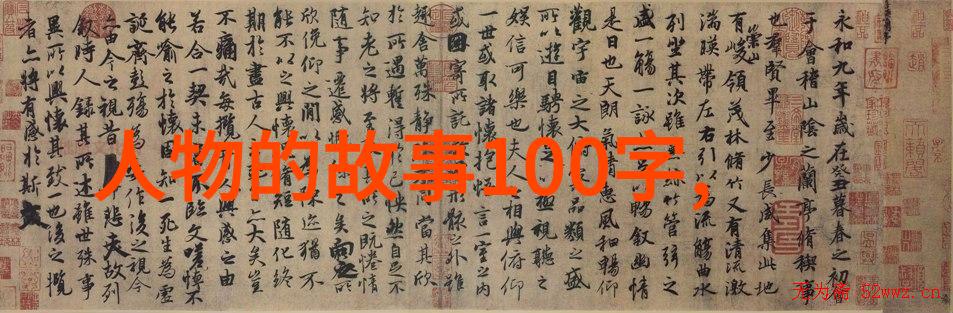 永和九年歲在癸丑暮春之初會
于會稽山陰之蘭亭脩稧事
也群賢畢至少長咸集此地
有崇山峻領茂林脩竹又有清流激
湍暎帶左右引以為流觴曲水
列坐其次雖絲竹管弦之
盛一觴一詠暢敘幽情
是日也天朗氣清惠風和暢仰
觀宇宙之大品類之盛
所以遊目騁懷極視聽之
娛信可樂也夫人相與俯仰
一世或取諸懷抱悟言一室之內
或因寄所託形骸之外雖
趣舍萬殊靜同當其欣
於所遇蹔得於己怏然自足不
知老之將至之既惓情
隨事遷感慨之矣向之所
欣俛仰之間以迹猶不
能不以之興懷脩短隨化終
期於盡古人亦大矣豈
不痛哉每攬興感之由
若合一契未臨文嗟悼不
能喻之於懷固知一死生為虛
誕齊彭殤為作後之視今
亦由今之視昔悲夫故列
敘時人錄其所述雖世殊事
異所以興懷其致一也後之攬
者亦將有感於斯文
人物的故事100字,
天为斋 52wwz.cn